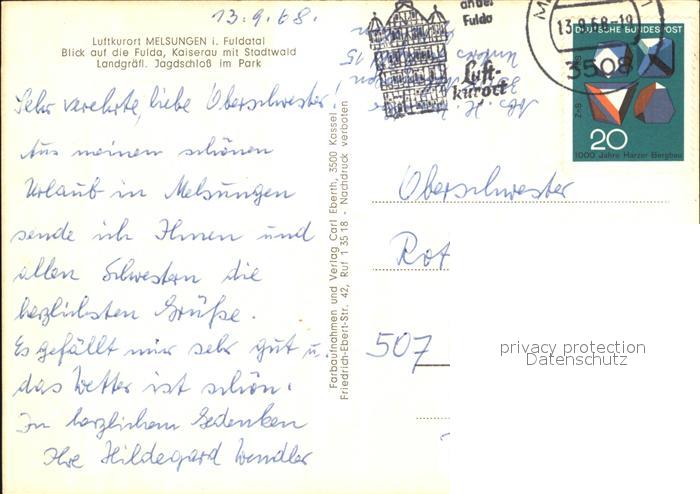 13.9.68.
Luftkurort MELSUNGEN i. Fuldatal
Blick auf die Fulda, Kaiserau mit Stadtwald
Landgräfl. Jagdschloß im Park
Sehr verehrte, liebe Oberschwester!
Aus meinem schönen
Urlaub in Melsungen
sende ich Ihnen und
allen Schwestern die
herzlichsten Grüße.
Es gefällt mir sehr gut u.
das Wetter ist schön.
In herzlichem Gedenken
Ihre Hildegard Wendler
Farbaufnahmen und Verlag Carl Eberth, 3500 Kassel
Friedrich-Ebert-Str. 42, Ruf 1 35 18 - Nachdruck verboten
an der
Fulda
Luft-
kurort
13.9.68-19
3508
Abs. H.
DEUTSCHE BUNDESPOST
ZnS
20
1000 Jahre Harzer Bergbau
Oberschwester
Rot
507
privacy protection
Datenschutz